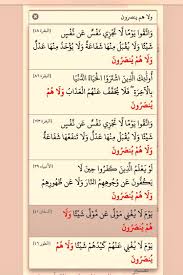 ولا هم ينصرون
[البقرة ٤٨]
وَاتَّقُوا يَوْمًا لَّا تَجْزِي نَفْسٌ عَن نَّفْسٍ
شَيْئًا وَلَا يُقْبَلُ مِنْهَا شَفَاعَةٌ وَلَا يُؤْخَذُ مِنْهَا عَدْلٌ
وَلَا هُمْ يُنصَرُونَ
[البقرة ٨٦]
أُولَٰئِكَ الَّذِينَ اشْتَرَوُا الْحَيَاةَ الدُّنْيَا
بِالْآخِرَةِ فَلَا يُخَفَّفُ عَنْهُمُ الْعَذَابُ وَلَا هُمْ
يُنصَرُونَ
[البقرة ١٢٣]
وَاتَّقُوا يَوْمًا لَّا تَجْزِي نَفْسٌ عَن نَّفْسٍ
شَيْئًا وَلَا يُقْبَلُ مِنْهَا عَدْلٌ وَلَا تَنفَعُهَا شَفَاعَةٌ
وَلَا هُمْ يُنصَرُونَ
[الأنبياء ٣٩]
لَوْ يَعْلَمُ الَّذِينَ كَفَرُوا حِينَ لَا
يَكُفُّونَ عَن وُجُوهِهِمُ النَّارَ وَلَا عَن ظُهُورِهِمْ
وَلَا هُمْ يُنصَرُونَ
[الدخان ٤١]
يَوْمَ لَا يُغْنِي مَوْلًى عَن مَّوْلًى شَيْئًا وَلَا
هُمْ يُنصَرُونَ
[الطور ٤٦]
يَوْمَ لَا يُغْنِي عَنْهُمْ كَيْدُهُمْ شَيْئًا وَلَا هُمْ
يُنصَرُونَ